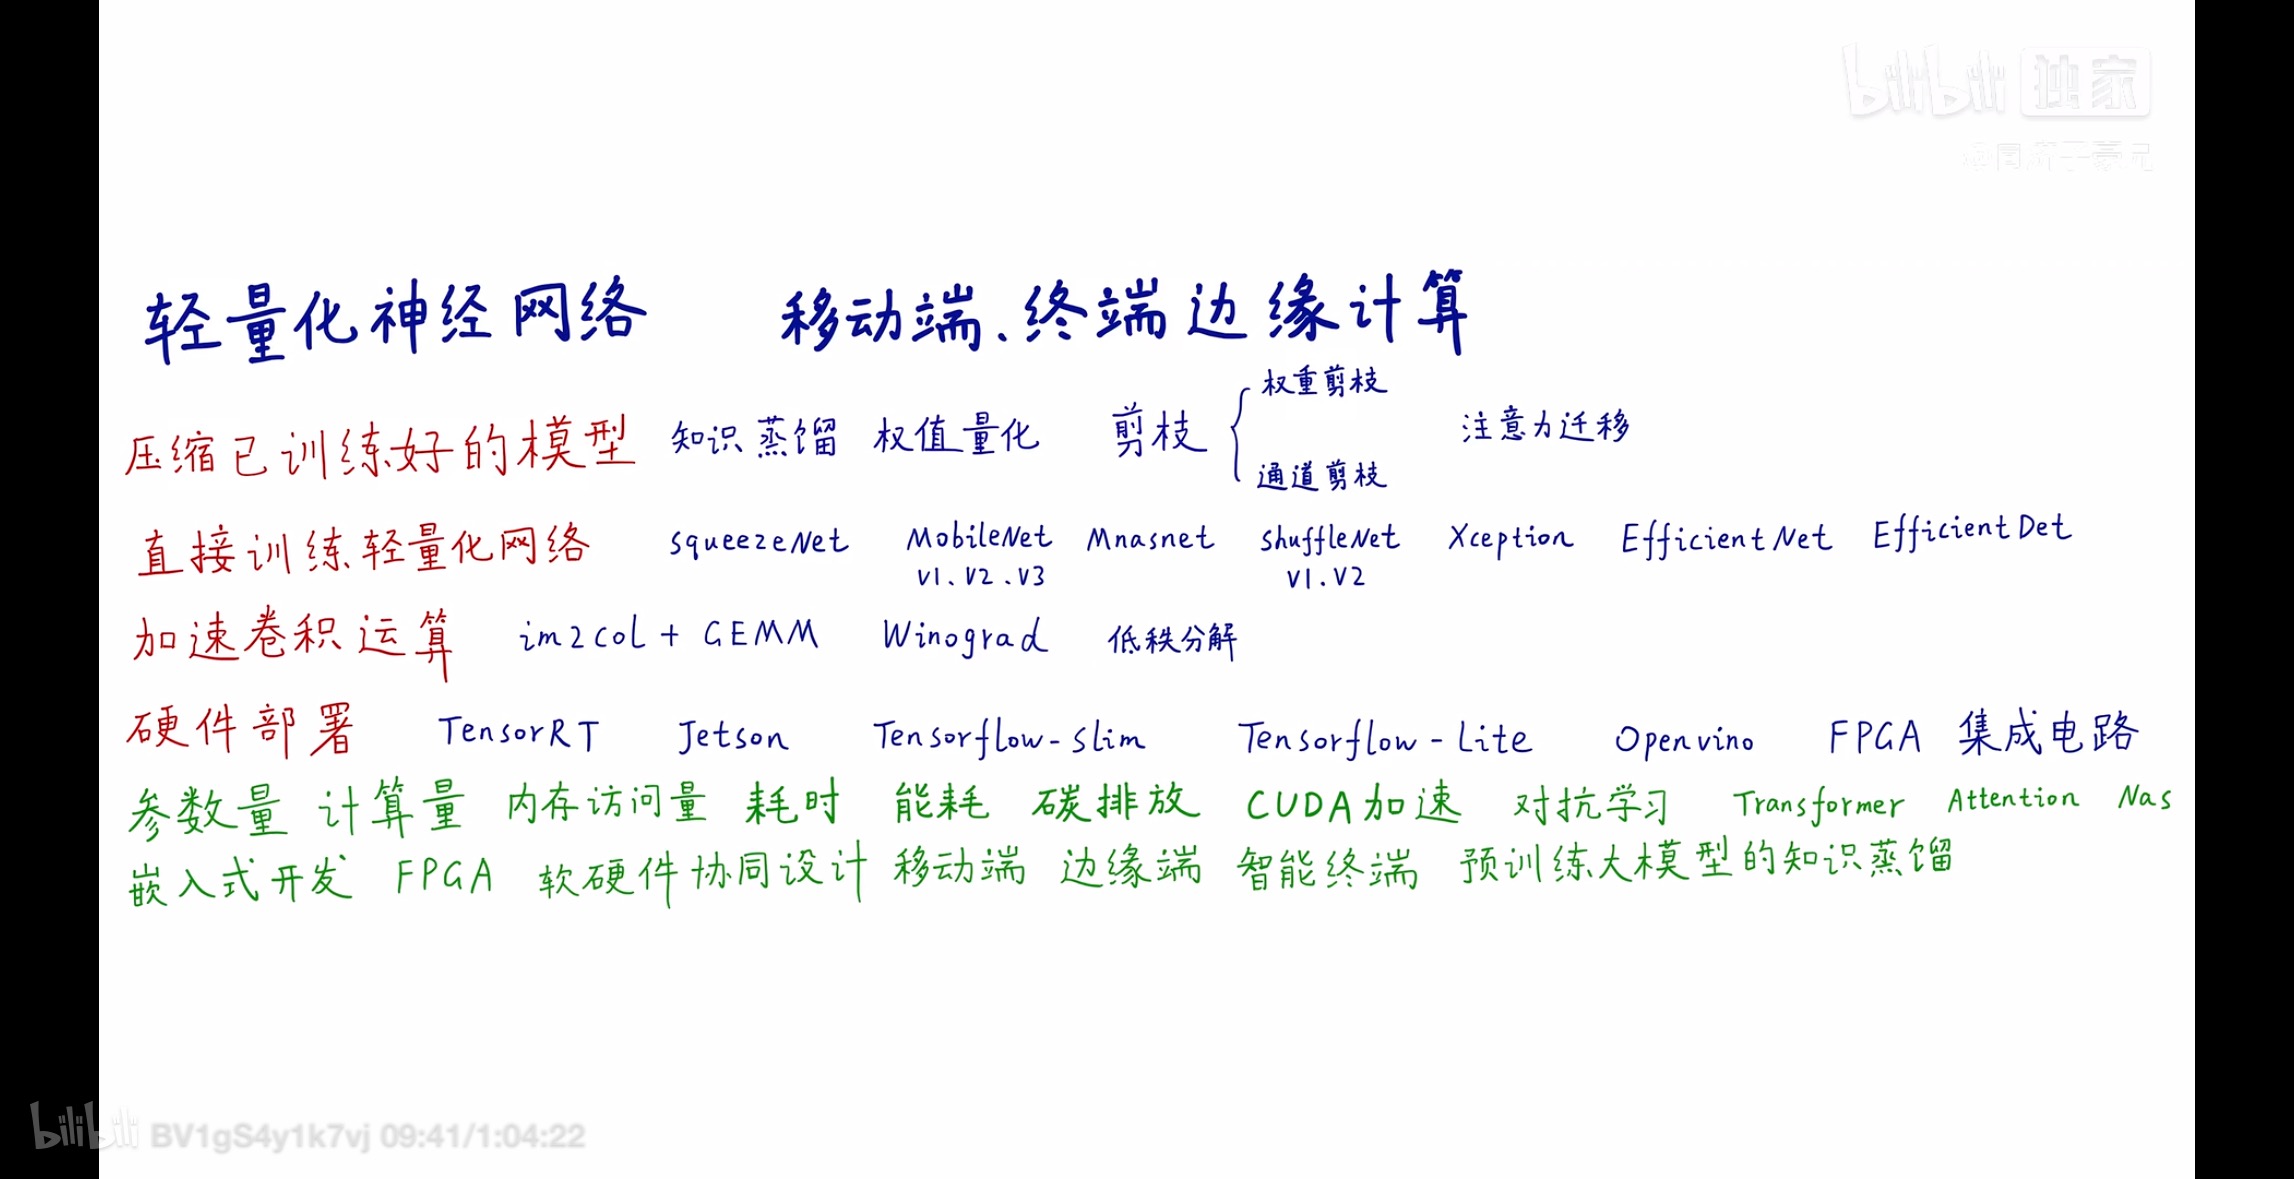 bilibili 独家
轻量化神经网络 移动端、终端边缘计算
权重剪枝
压缩已训练好的模型 知识蒸馏 权值量化 剪枝 注意力迁移
通道剪枝
直接训练轻量化网络 squeezeNet MobileNet Mnasnet shuffleNet Xception EfficientNet EfficientDet
V1、V2、V3 V1、V2
加速卷积运算 im2col + GEMM Winograd 低秩分解
硬件部署 TensorRT Jetson Tensorflow-slim Tensorflow-Lite Openvino FPGA 集成电路
参数量 计算量 内存访问量 耗时 能耗 碳排放 CUDA加速 对抗学习 Transformer Attention Nas
嵌入式开发 FPGA 软硬件协同设计 移动端 边缘端 智能终端 预训练大模型的知识蒸馏
bilibili BV1gS4y1k7vj 09:41/1:04:22